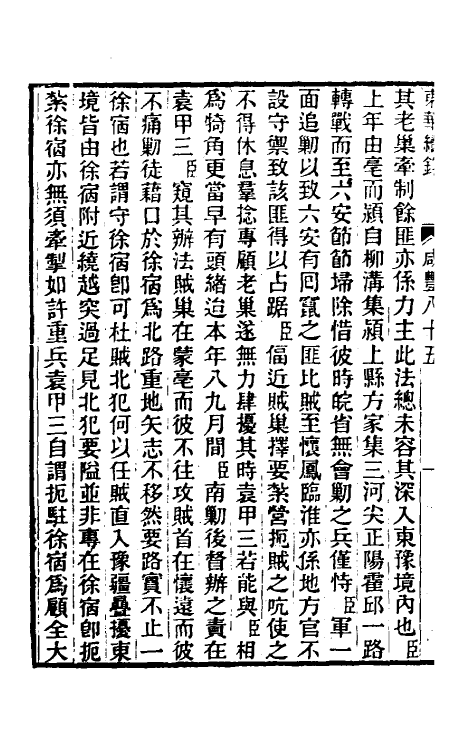 東華續錄 咸豐八十五 一
其老巢牽制餘匪亦係力主此法總未容其深入東豫境內也臣
上年由亳而潁自柳溝集潁上縣方家集三河尖正陽霍邱一路
轉戰而至六安節節埽除惜彼時皖省無會勦之兵僅恃臣軍一
面追勦以致六安有回竄之匪比賊至懷鳳臨淮亦係地方官不
設守禦致該匪得以占踞臣偪近賊巢擇要紮營扼賊之吭使之
不得休息羣捻專顧老巢遂無力肆擾其時袁甲三若能與臣相
為犄角更當早有頭緒迨本年八九月間臣南勦後督辦之責在
袁甲三臣窺其辦法賊巢在蒙亳而彼不往攻賊首在懷遠而彼
不痛勦徒藉口於徐宿為北路重地矢志不移然要路實不止一
徐宿也若謂守徐宿卽可杜賊北犯何以任賊直入豫疆疊擾東
境皆由徐宿附近繞越突過足見北犯要隘並非專在徐宿卽扼
紮徐宿亦無須牽掣如許重兵袁甲三自謂扼駐徐宿為顧全大